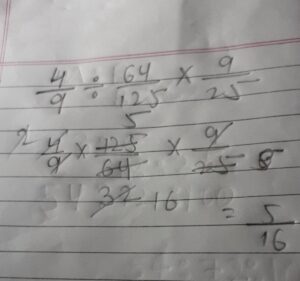 4/9 ÷ 164/125 × 9/25
5
2 4/9 × 125/64 × 9/25 5
32 16
= 5/16